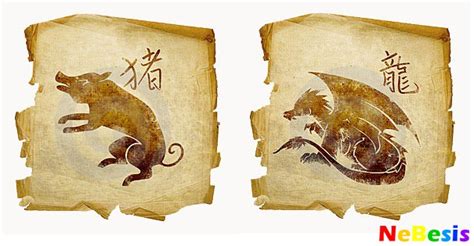 猪
龍
NeBesis